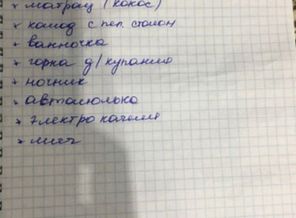 * матрац (кокос)
* комод с пел. столом
* ванночка
* горка д/купания
* ночник
* автолюлька
* электро качели